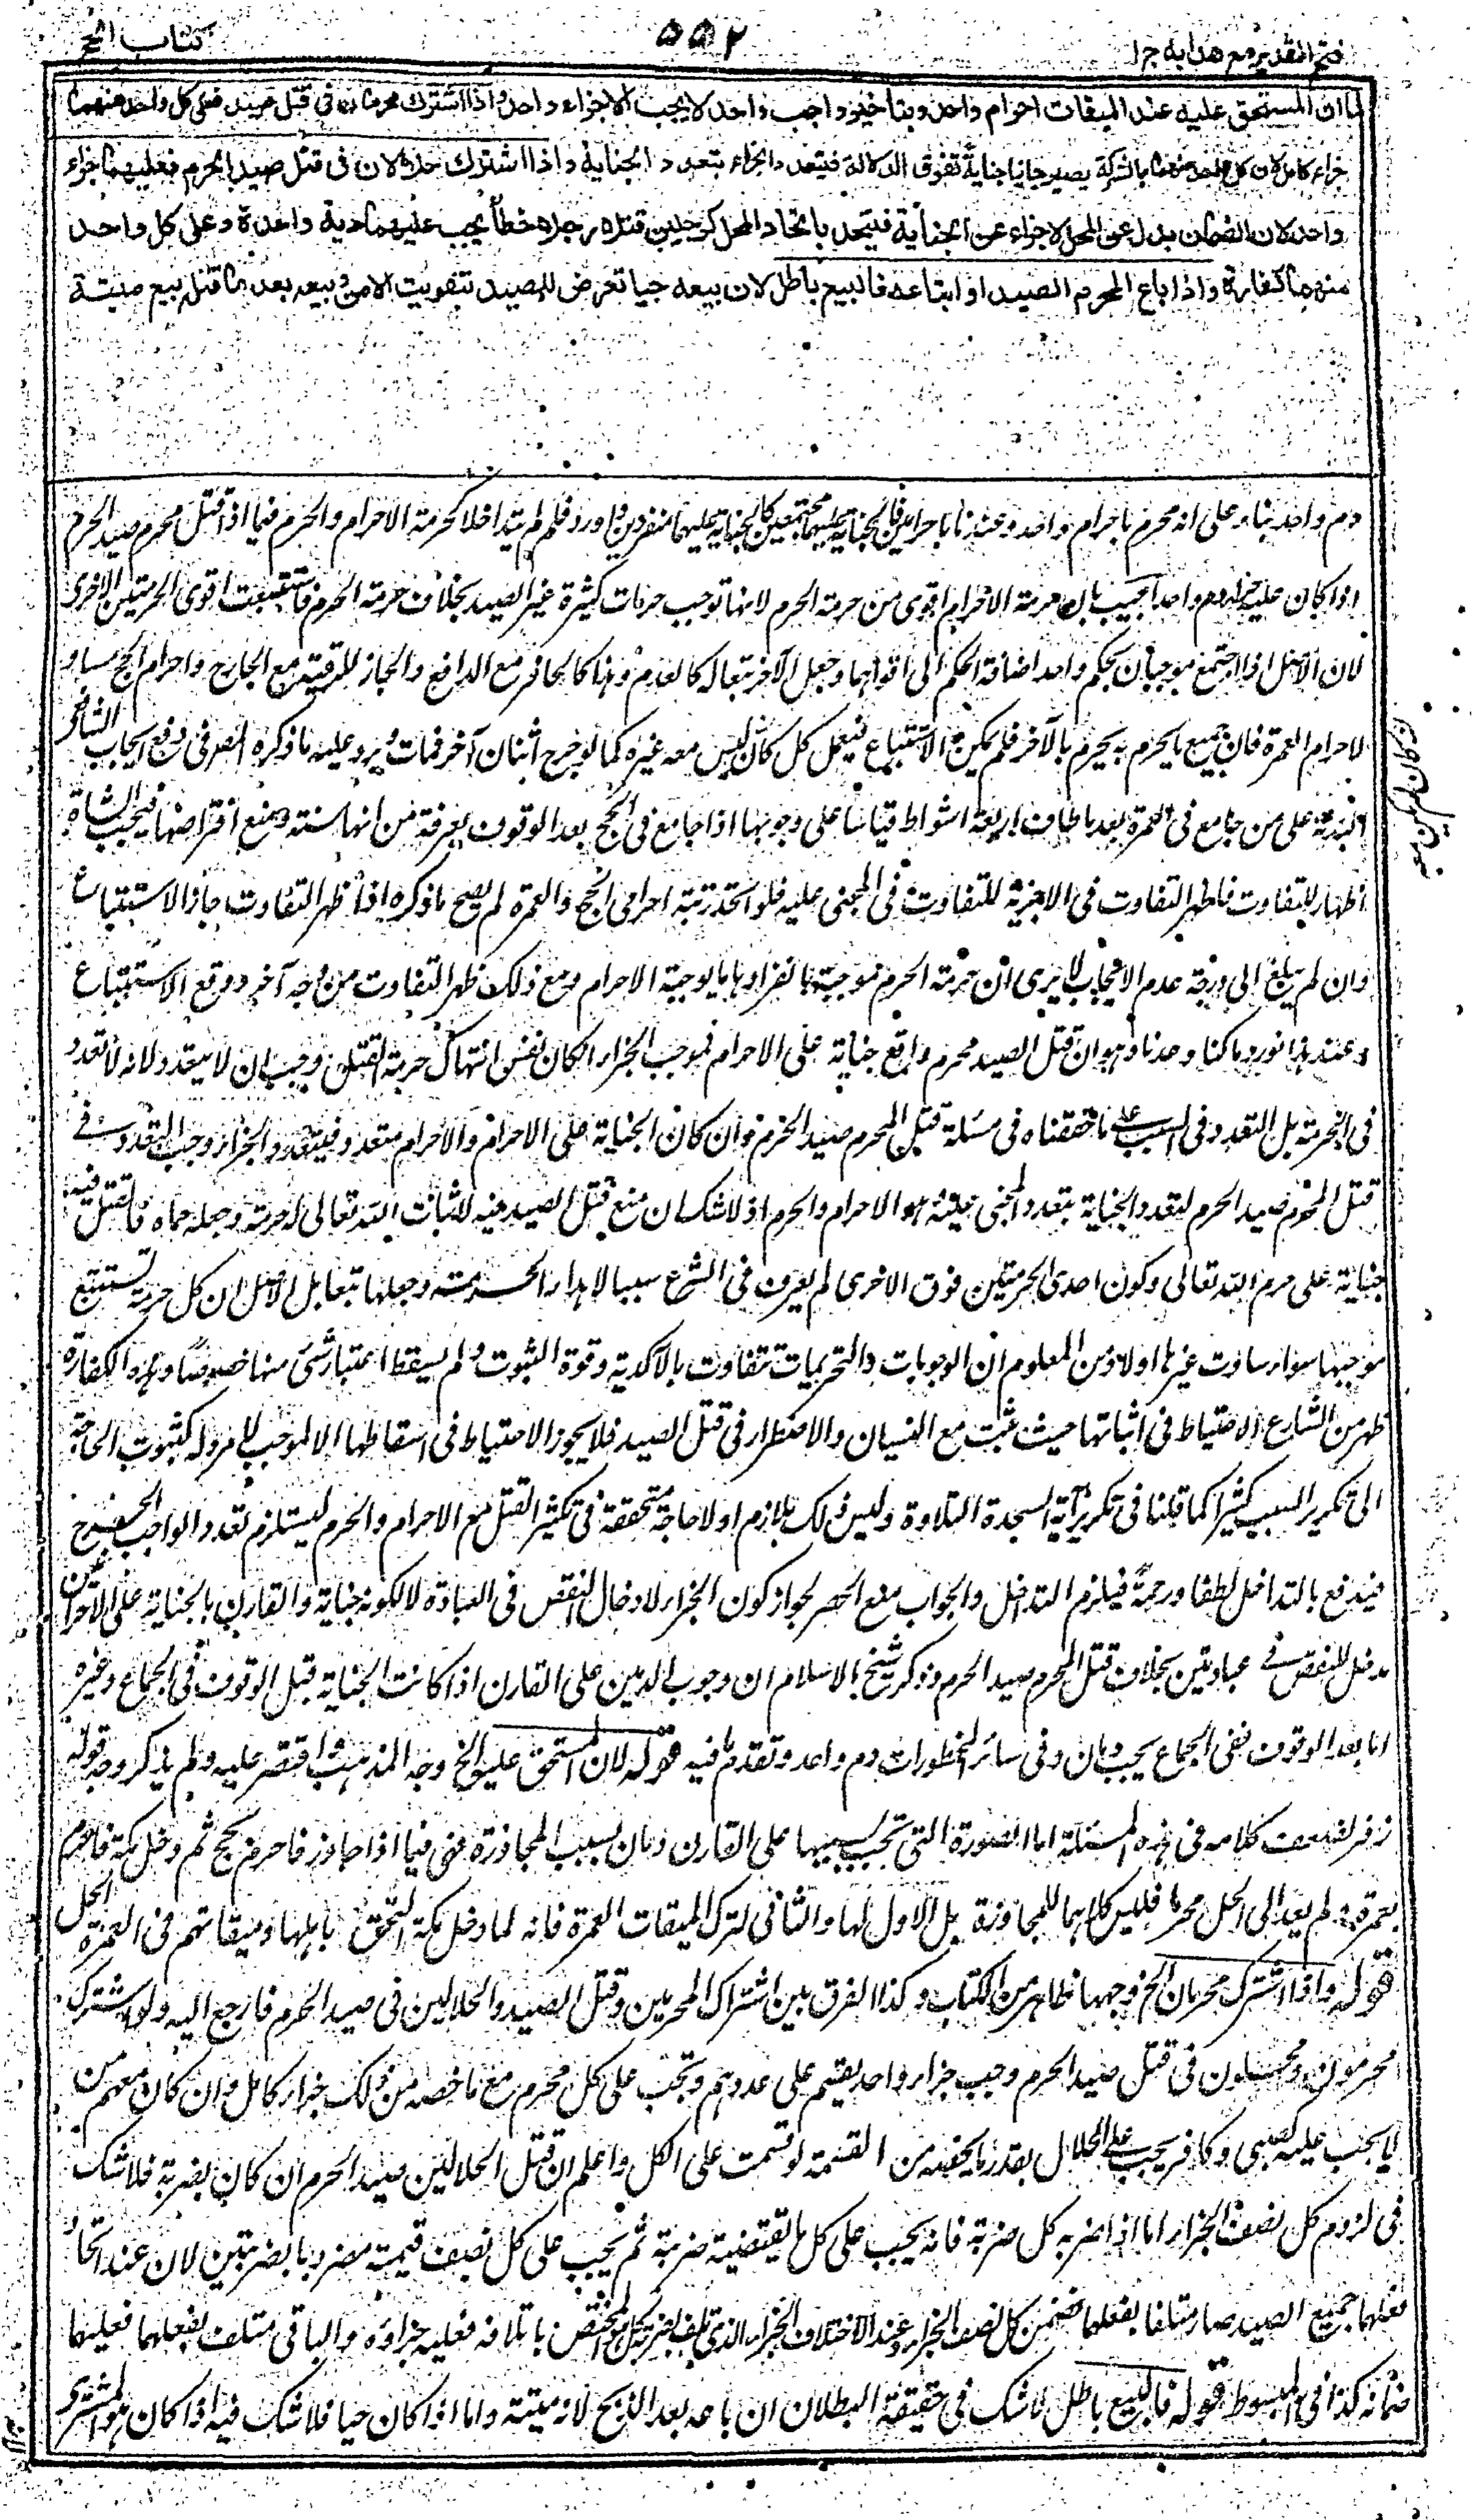 فتح القدير مع هدايه جرا
۵۵۲
كتاب الحج
لما ان المستحق عليه عند الميقات احرام واحد وبتاخير واجب واحد لا يجب الا جزاء واحد واذا اشترك محرمان فى قتل صيد فعلى كل واحد منهما
جزاء كامل لان كل واحد منهما بالشركة يصير جانيا جناية تفوق الدلالة فيتعدد الجزاء بتعدد الجناية واذا اشترك حلالان فى قتل صيد الحرم فعليهما جزاء
واحد لان الضمان بدل عن المحل لا جزاء عن الجناية فيتحد باتحاد المحل كرجلين قتلا رجلا خطأ يجب عليهما دية واحدة وعلى كل واحد
منهما كفارة واذا باع المحرم الصيد او ابتاعه فالبيع باطل لان بيعه حيا تعرض للصيد بتفويت الامن وبيعه بعد ما قتله بيع ميتة
دم واحد بناء على انه محرم باحرام واحد وعندنا باحرامين فالجناية عليهما مجتمعين كالجناية عليهما منفردين واورد فلم لم يتداخلا كحرمة الاحرام والحرم فيما اذا قتل محرم صيد الحرم
اذا كان عليه جزاء واحد اجيب بان حرمة الاحرام اقوى من حرمة الحرم لانها توجب حرمات كثيرة غير الصيد بخلاف حرمة الحرم فاستتبعت اقوى الحرمتين الاخرى
لان الاصل اذا اجتمع موجبان بحكم واحد اضافة الحكم الى اقواهما وجعل الآخر تبعا له كالعدم وهنا كالحافر مع الدافع والحاز للرقبة مع الجارح واحرام الحج مساو
لاحرام العمرة فان جميع ما يحرم به يحرم بالآخر فلم يمكن الاستتباع فيعمل كل كأن ليس معه غيره كما لو جرح اثنان آخر فمات ويرد عليه ما ذكره المصر فى دفع ايجاب الشافعى
البدنة على من جامع فى العمرة بعد ما طاف اربعة اشواط قياسا على وجوبها اذا جامع فى الحج بعد الوقوف بعرفة من انها سنة ومنع افتراضها فيجب الشاة
اظهارا للتفاوت فاظهر التفاوت فى الاجزية للتفاوت فى المجنى عليه فلو اتحد رتبة احرامى الحج والعمرة لم يصح ما ذكره اذا ظهر التفاوت جاز الاستتباع
وان لم يبلغ الى درجة عدم الايجاب الا يرى ان حرمة الحرم موجبة بانفرادها ما يوجبه الاحرام ومع ذلك ظهر التفاوت من وجه آخر ووقع الاستتباع
وعند هذا نورد ما كنا وعدنا وهو ان قتل الصيد محرم واقع جناية على الاحرام فموجب الجزاء ان كان نفس انتهاك حرمة القتل وجب ان لا يتعدد لانه لا تعدد
فى الحرمة بل التعدد فى السبب على ما حققناه فى مسئلة قتل المحرم صيد الحرم وان كان الجناية على الاحرام والاحرام متعدد فيتعدد الجزاء وجب التعدد فى
قتل المحرم صيد الحرم لتعدد الجناية بتعدد المجنى عليه وهو الاحرام والحرم اذ لا شك ان منع قتل الصيد فيه لاثبات الله تعالى له حرمة وجعله حماه فالقتل فيه
جناية على حرم الله تعالى وكون احدى الحرمتين فوق الاخرى لم يعرف فى الشرع سببا لاهدار الحرمة وجعلها تبعا بل الاصل ان كل حرمة تستتبع
موجبها سواء ساوت غيرها اولا ومن المعلوم ان الوجوبات والتحريمات تتفاوت بالاكدية وقوة الثبوت ولم يسقط اعتبار شئ منها خصوصا وهذه الكفارة
ظهر من الشارع الاحتياط فى اثباتها حيث ثبت مع النسيان والاضطرار فى قتل الصيد فلا يجوز الاحتياط فى اسقاطها الا لموجب لا مرد له كثبوت الحاجة
الى تكرير السبب كثيرا كما قلنا فى تكرير آية السجدة التلاوة وليس ذلك بلازم اولا حاجة متحققة فى تكثير القتل مع الاحرام والحرم ليستلزم تعدد الواجب الحرج
فيندفع بالتداخل لطفا ورحمة فيلزم التداخل والجواب منع الحصر لجواز كون الجزاء لادخال النقص فى العبادة لا لكونه جناية والقارن بالجناية على الاحرامين
مدخل للنقص فى عبادتين بخلاف قتل المحرم صيد الحرم وذكر شيخ الاسلام ان وجوب الدمين على القارن اذا كانت الجناية قبل الوقوف فى الجماع وغيره
اما بعد الوقوف ففى الجماع يجب دمان وفى سائر المحظورات دم واحد وتقدم ما فيه قوله لان المستحق عليه الخ وجه المذهب واقتصر عليه ولم يذكر وجه قوله
زفر لضعف كلامه فى هذه المسئلة اما الصورة التى تجب بسببها على القارن دمان بسبب المجاوزة فهى فيما اذا جاوز فاحرم بحج ثم دخل مكة فاحرم
بعمرة ولم يعد الى الحل محرما فليس كلاهما للمجاوزة بل الاول لها والثانى لترك الميقات العمرة فانه لما دخل مكة التحق باهلها وميقاتهم فى العمرة الحل
قوله واذا اشترك محرمان الخ وجهها ظاهر من الكتاب وكذا الفرق بين اشتراك المحرمين وقتل الصيد والحلالين فى صيد الحرم فارجع اليه ولو اشترك
محرمون ومحلون فى قتل صيد الحرم وجب جزاء واحد يقسم على عددهم ويجب على كل محرم مع ما خصه من ذلك جزاء كامل وان كان معهم من
لا يجب عليه كصبى وكافر يجب على الحلال بقدر ما يخصه من القسمة لو قسمت على الكل واعلم ان قتل الحلالين صيد الحرم ان كان بضربة فلا شك
فى لزوم كل نصف الجزاء اما اذا ضربه كل ضربة فانه يجب على كل ما يقتضيه ضربة ثم يجب على كل نصف قيمته مضروبا بضربتين لان عند اتحاد
فعلهما جميع الصيد صار متلفا بفعلهما فضمن كل نصف الجزاء وعند الاختلاف الجزاء الذى تلف بضربة كل هو المختص باتلافه فعليه جزاؤه والباقى متلف بفعلهما فعليهما
ضمانه كذا فى المبسوط قوله فالبيع باطل لا شك فى حقيقة البطلان ان باعه بعد الذبح لانه ميتة واما اذا كان حيا فلا شك فيه اذا كان هو المشترى